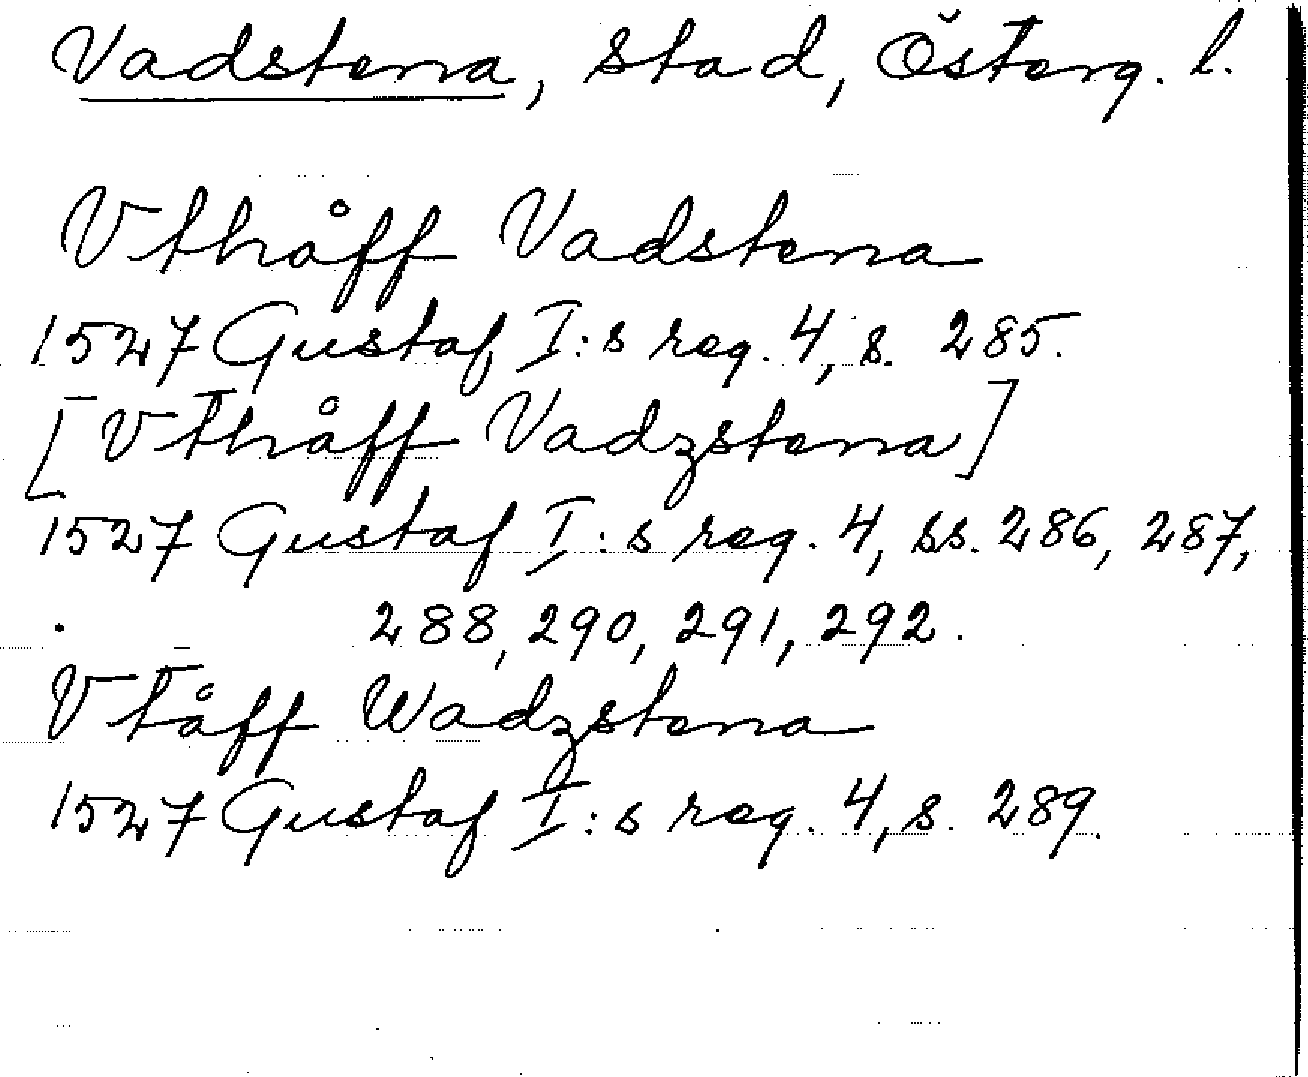 Vadstena, stad, Österg. l.
Vthåff Vadstena
1527 Gustaf I:s reg. 4, s. 285.
[Vthåff Vadzstena]
1527 Gustaf I:s reg. 4, ss. 286, 287,
288, 290, 291, 292.
Vtåff Wadzstena
1527 Gustaf I:s reg. 4, s. 289.